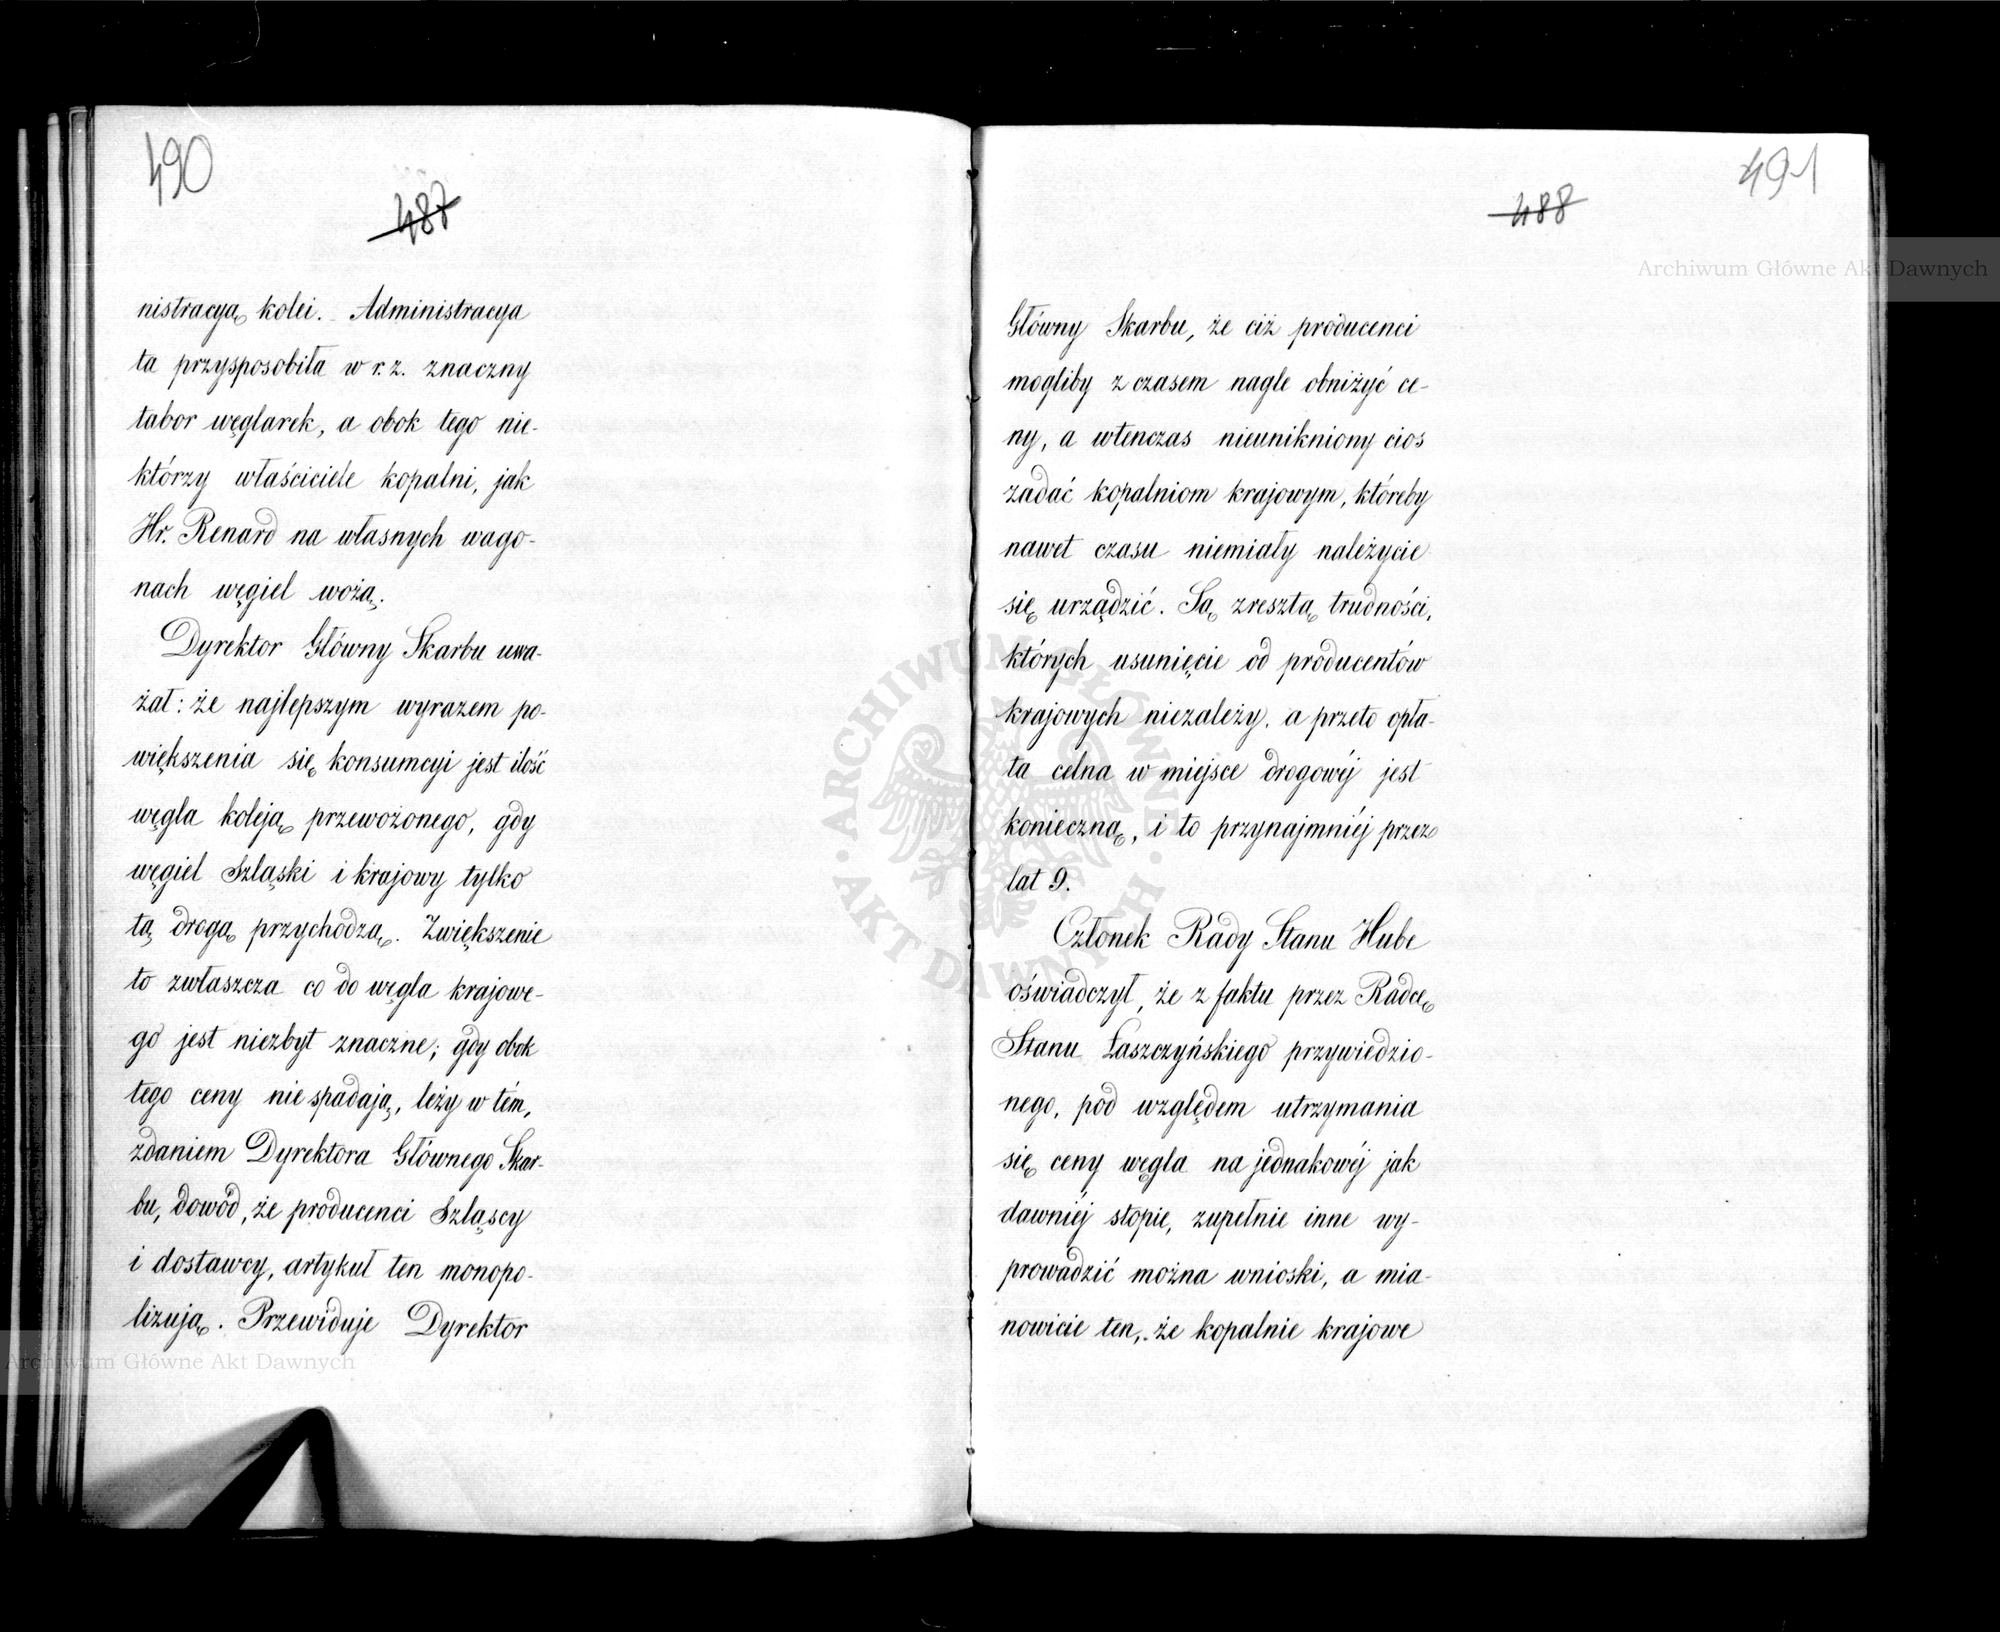 490
487
nistracyą kolei. Administracya
ta przysposobiła w r. z. znaczny
tabor węglarek, a obok tego nie-
którzy właściciele kopalni, jak
Hr. Renard na własnych wago-
nach węgiel wożą.
Dyrektor Główny Skarbu uwa-
żał: że najlepszym wyrazem po-
większenia się konsumcyi jest ilość
węgla koleją przewożonego, gdy
węgiel Szląski i krajowy tylko
tą drogą przychodzą. Zwiększenie
to zwłaszcza co do węgla krajowe-
go jest niezbyt znaczne; gdy obok
tego ceny nie spadają, leży w tém,
zdaniem Dyrektora Głównego Skar-
bu, dowód, że producenci Szląscy
i dostawcy, artykuł ten monopo-
lizują. Przewiduje Dyrektor
491
488
Główny Skarbu, że ciż producenci
mogliby z czasem nagle obniżyć ce-
ny, a wtenczas nieunikniony cios
zadać kopalniom krajowym, któreby
nawet czasu niemiały należycie
się urządzić. Są zresztą trudności,
których usunięcie od producentów
krajowych niezależy, a przeto opła-
ta celna w miejsce drogowéj jest
konieczną, i to przynajmniéj przez
lat 9.
Członek Rady Stanu Hube
oświadczył, że z faktu przez Radcę
Stanu Łaszczyńskiego przywiedzio-
nego, pod względem utrzymania
się ceny węgla na jednakowéj jak
dawniéj stopie, zupełnie inne wy-
prowadzić można wnioski, a mia-
nowicie ten, że kopalnie krajowe
Archiwum Główne Akt Dawnych
Archiwum Główne Akt Dawnych
ARCHIWUM GŁÓWNE
AKT DAWNYCH